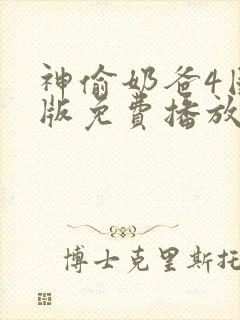 神偷奶爸4
版免费播放
博士克里斯托